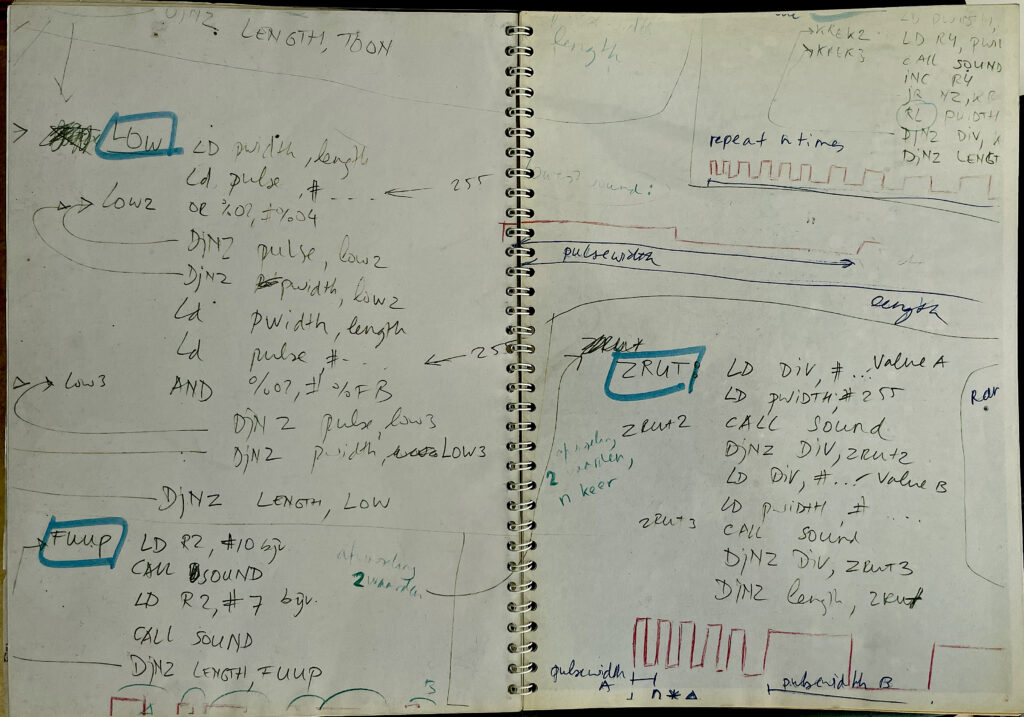 DJNZ
LENGTH, TOON
LOW LD pwidth, length
Ld pulse, # .... ← 255
LOW2 OR %02, #%04
DjNZ pulse, low2
DjNZ pwidth, low2
Ld pwidth, length
Ld pulse #.. ← 255
low3 AND %02, # %FB
DjNZ pulse, low3
DjNZ pwidth, LOW3
DjNZ LENGTH, LOW
FUUP LD R2, #10 bijv.
CALL SOUND
LD R2, # 7 bijv.
CALL SOUND
DjNZ LENGTH, FUUP
afwisseling
2 waarden
5
length
KREK2
KREK3
LD PWIDTH,
LD R4, PWI
CALL SOUND
INC R4
JR NZ, KR
RL PWIDTH
DJNZ DIV,
DjNZ LENGT
repeat n times
sound:
pulsewidth
length
ZRUT LD DIV, # ... Value A
LD PWIDTH, # 255
ZRUT2 CALL SOUND
DJNZ DIV, ZRUT2
LD DIV, #... Value B
LD PWIDTH, # ....
ZRUT3 CALL SOUND
DJNZ DIV, ZRUT3
DJNZ length, ZRUT
afwisseling
2 waarden,
n keer
pulsewidth
A
n * Δ
pulsewidth B